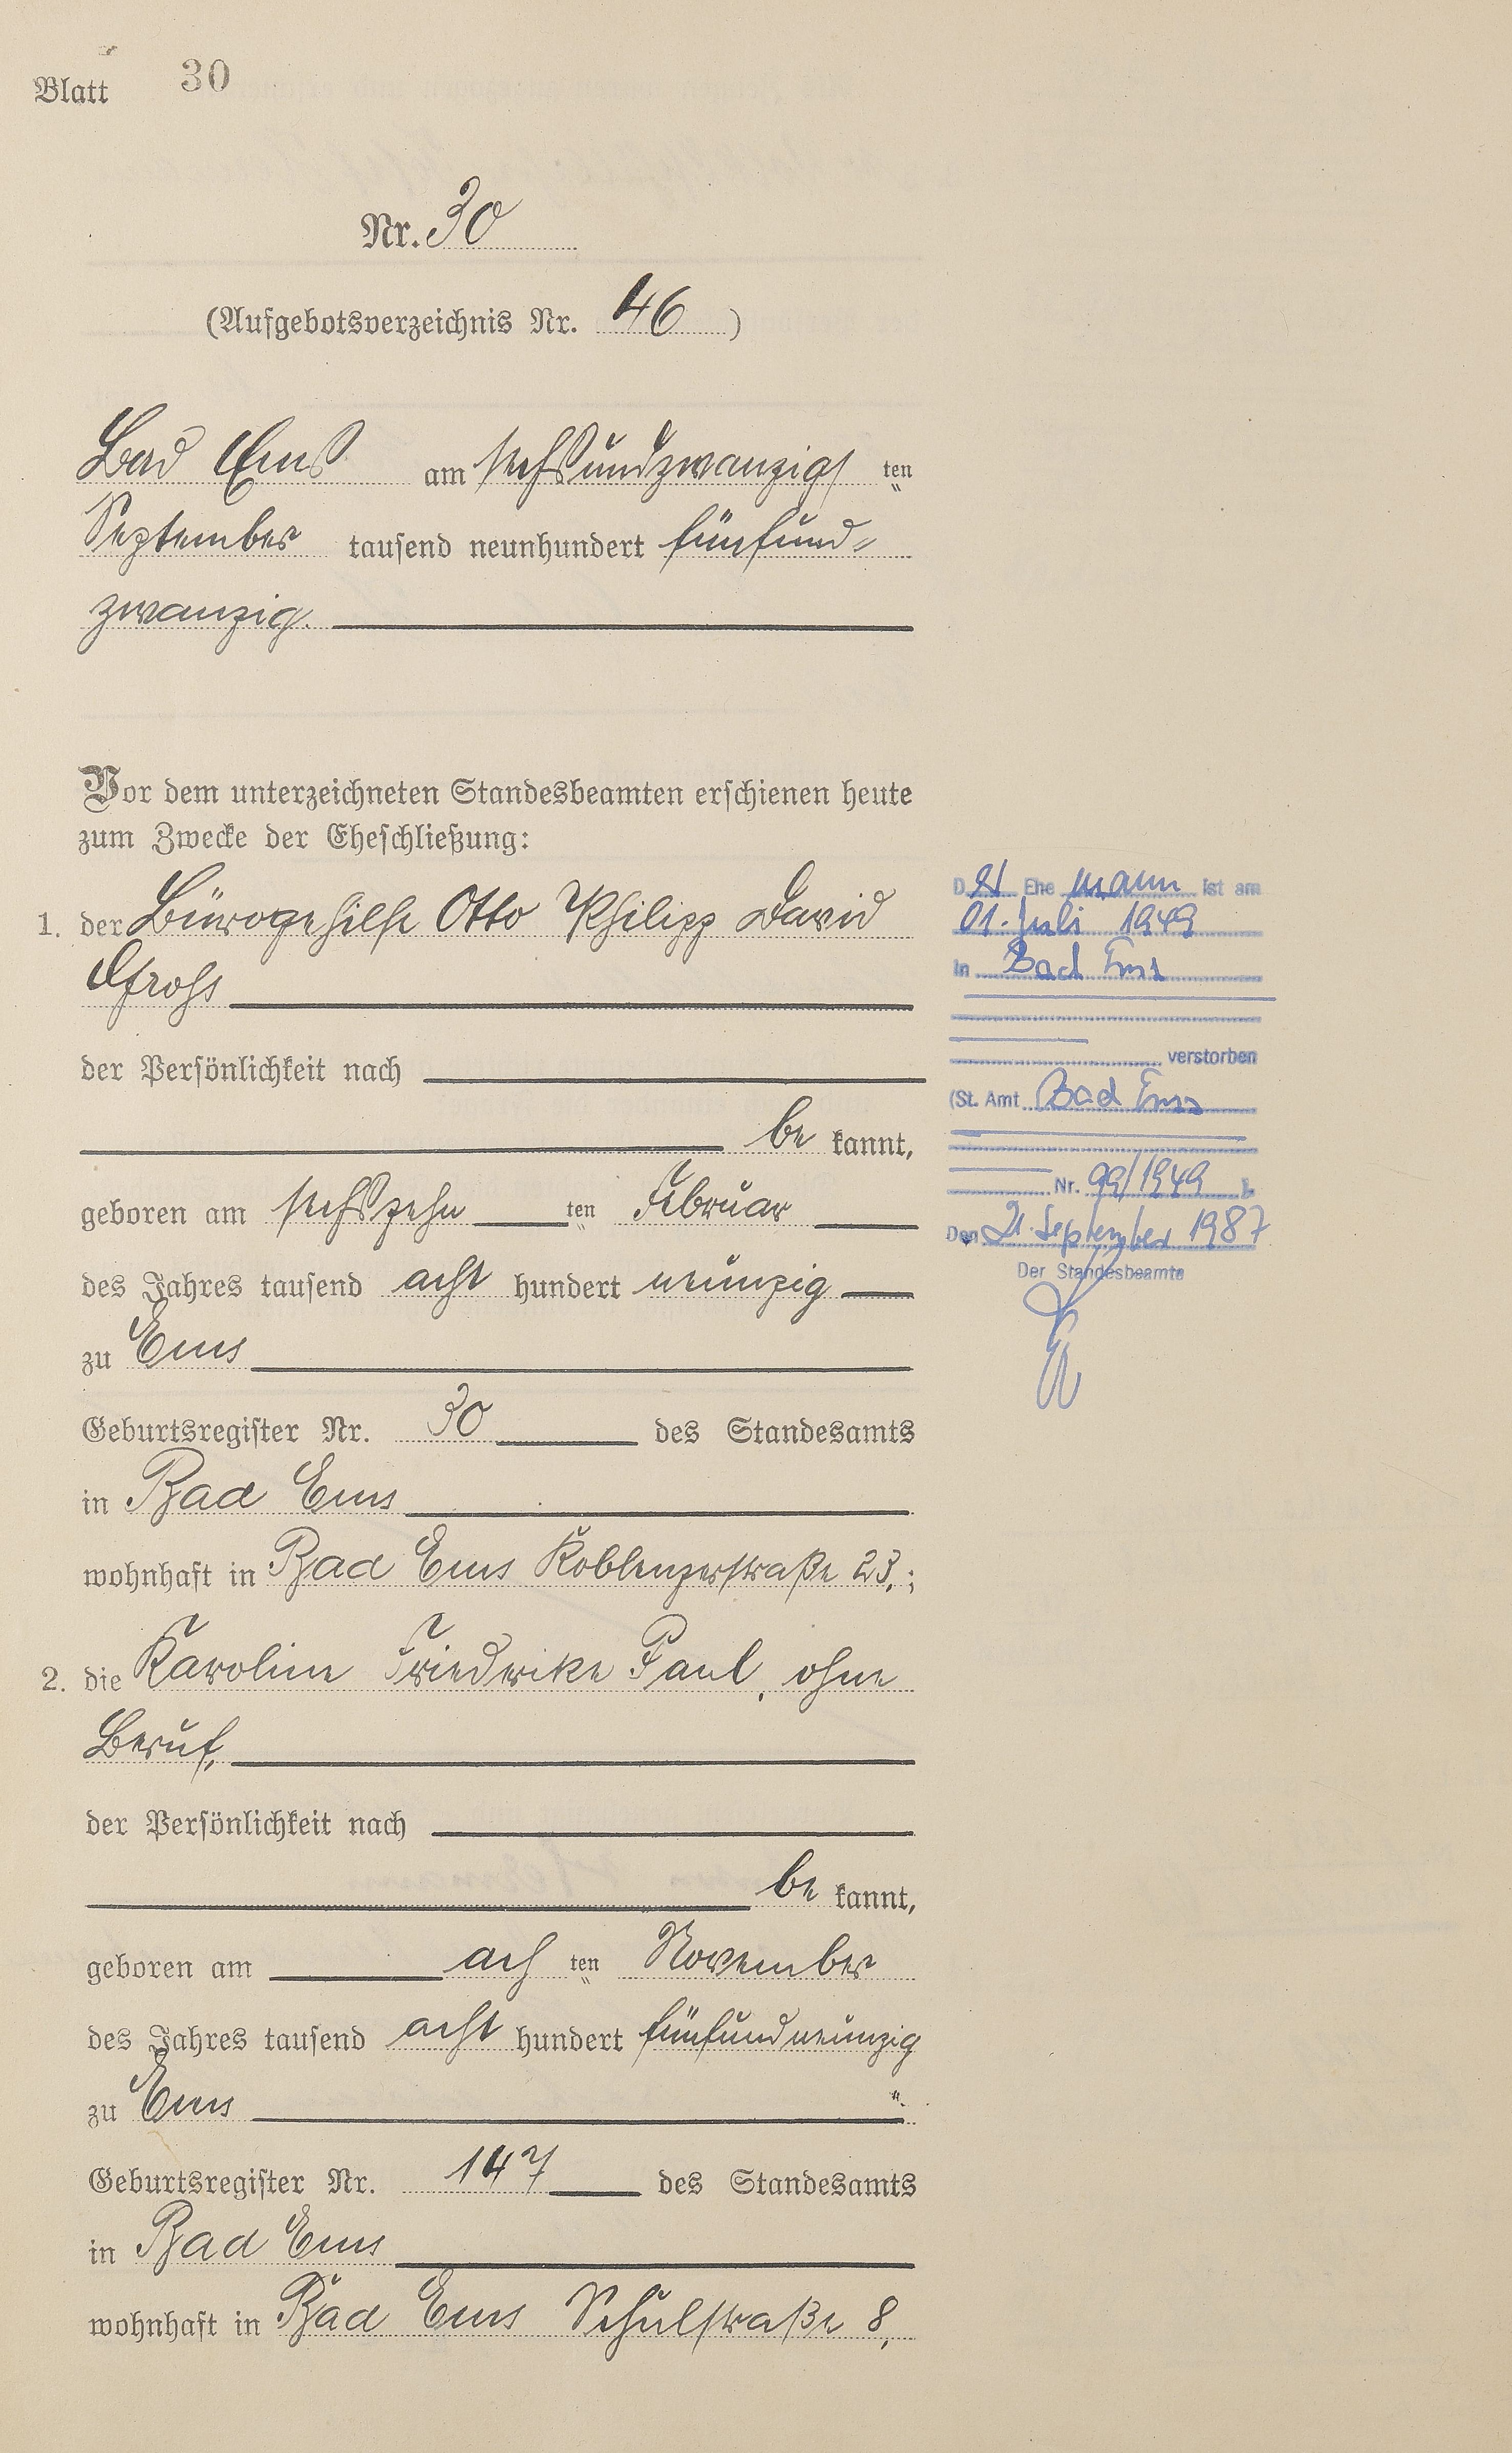 Blatt 30
Nr. 30
(Aufgebotsverzeichnis Nr. 46)
Bad Ems am sechsundzwanzigsten
September tausend neunhundert fünfund-
zwanzig.
Vor dem unterzeichneten Standesbeamten erschienen heute
zum Zwecke der Eheschließung:
1. der Bürogehilfe Otto Philipp David
der Persönlichkeit nach
be kannt,
geboren am sechszehn ten Februar
des Jahres tausend acht hundert neunzig
zu Ems
Geburtsregister Nr. 30 des Standesamts
in Bad Ems
wohnhaft in Bad Ems Koblenzerstraße 23.;
2. die Karoline Friedrike Paul, ohne
Beruf,
der Persönlichkeit nach
be kannt,
geboren am ach ten November
des Jahres tausend acht hundert fünfundneunzig
zu Ems
Geburtsregister Nr. 147 des Standesamts
in Bad Ems
wohnhaft in Bad Ems Schulstraße 8,
Der Ehe mann ist am
01. Juli 1949
in Bad Ems
verstorben
(St. Amt Bad Ems
Nr. 99/1949 ).
Den 21. September 1987
Der Standesbeamte